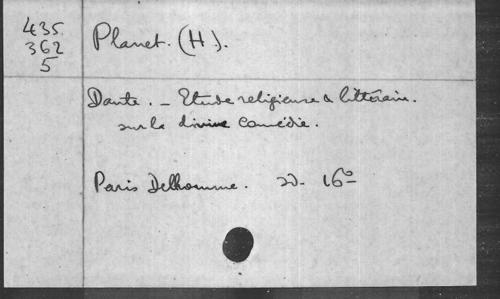 435
362
5
Planet. (H.).
Dante. – Etude religieuse & littéraire.
sur la divine Comédie.
Paris Delhomme. sd. 16º